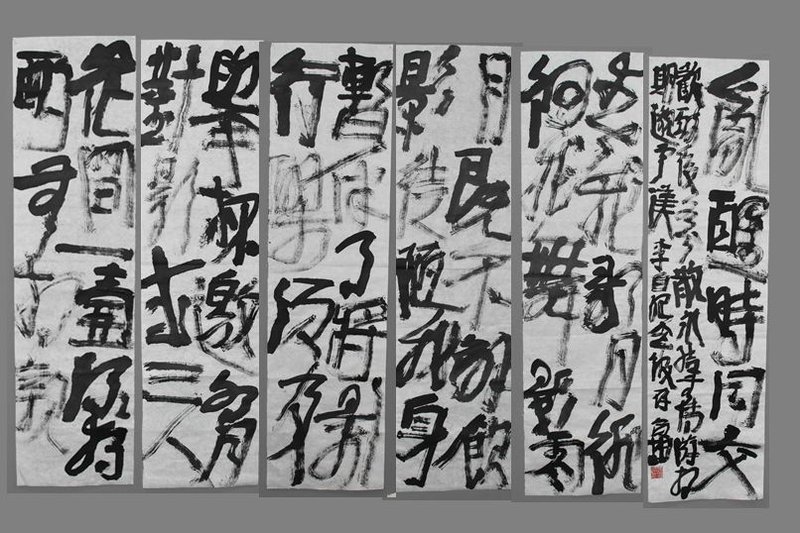 花間一壺酒獨
酌無相親
舉杯邀明月
對影成三人
月既不解飲
影徒隨我身
暫伴月將影
行樂須及
春我歌月徘
徊我舞影零
亂醒時同交
歡醉後各分散永結無情遊相
期邈雲漢 李白